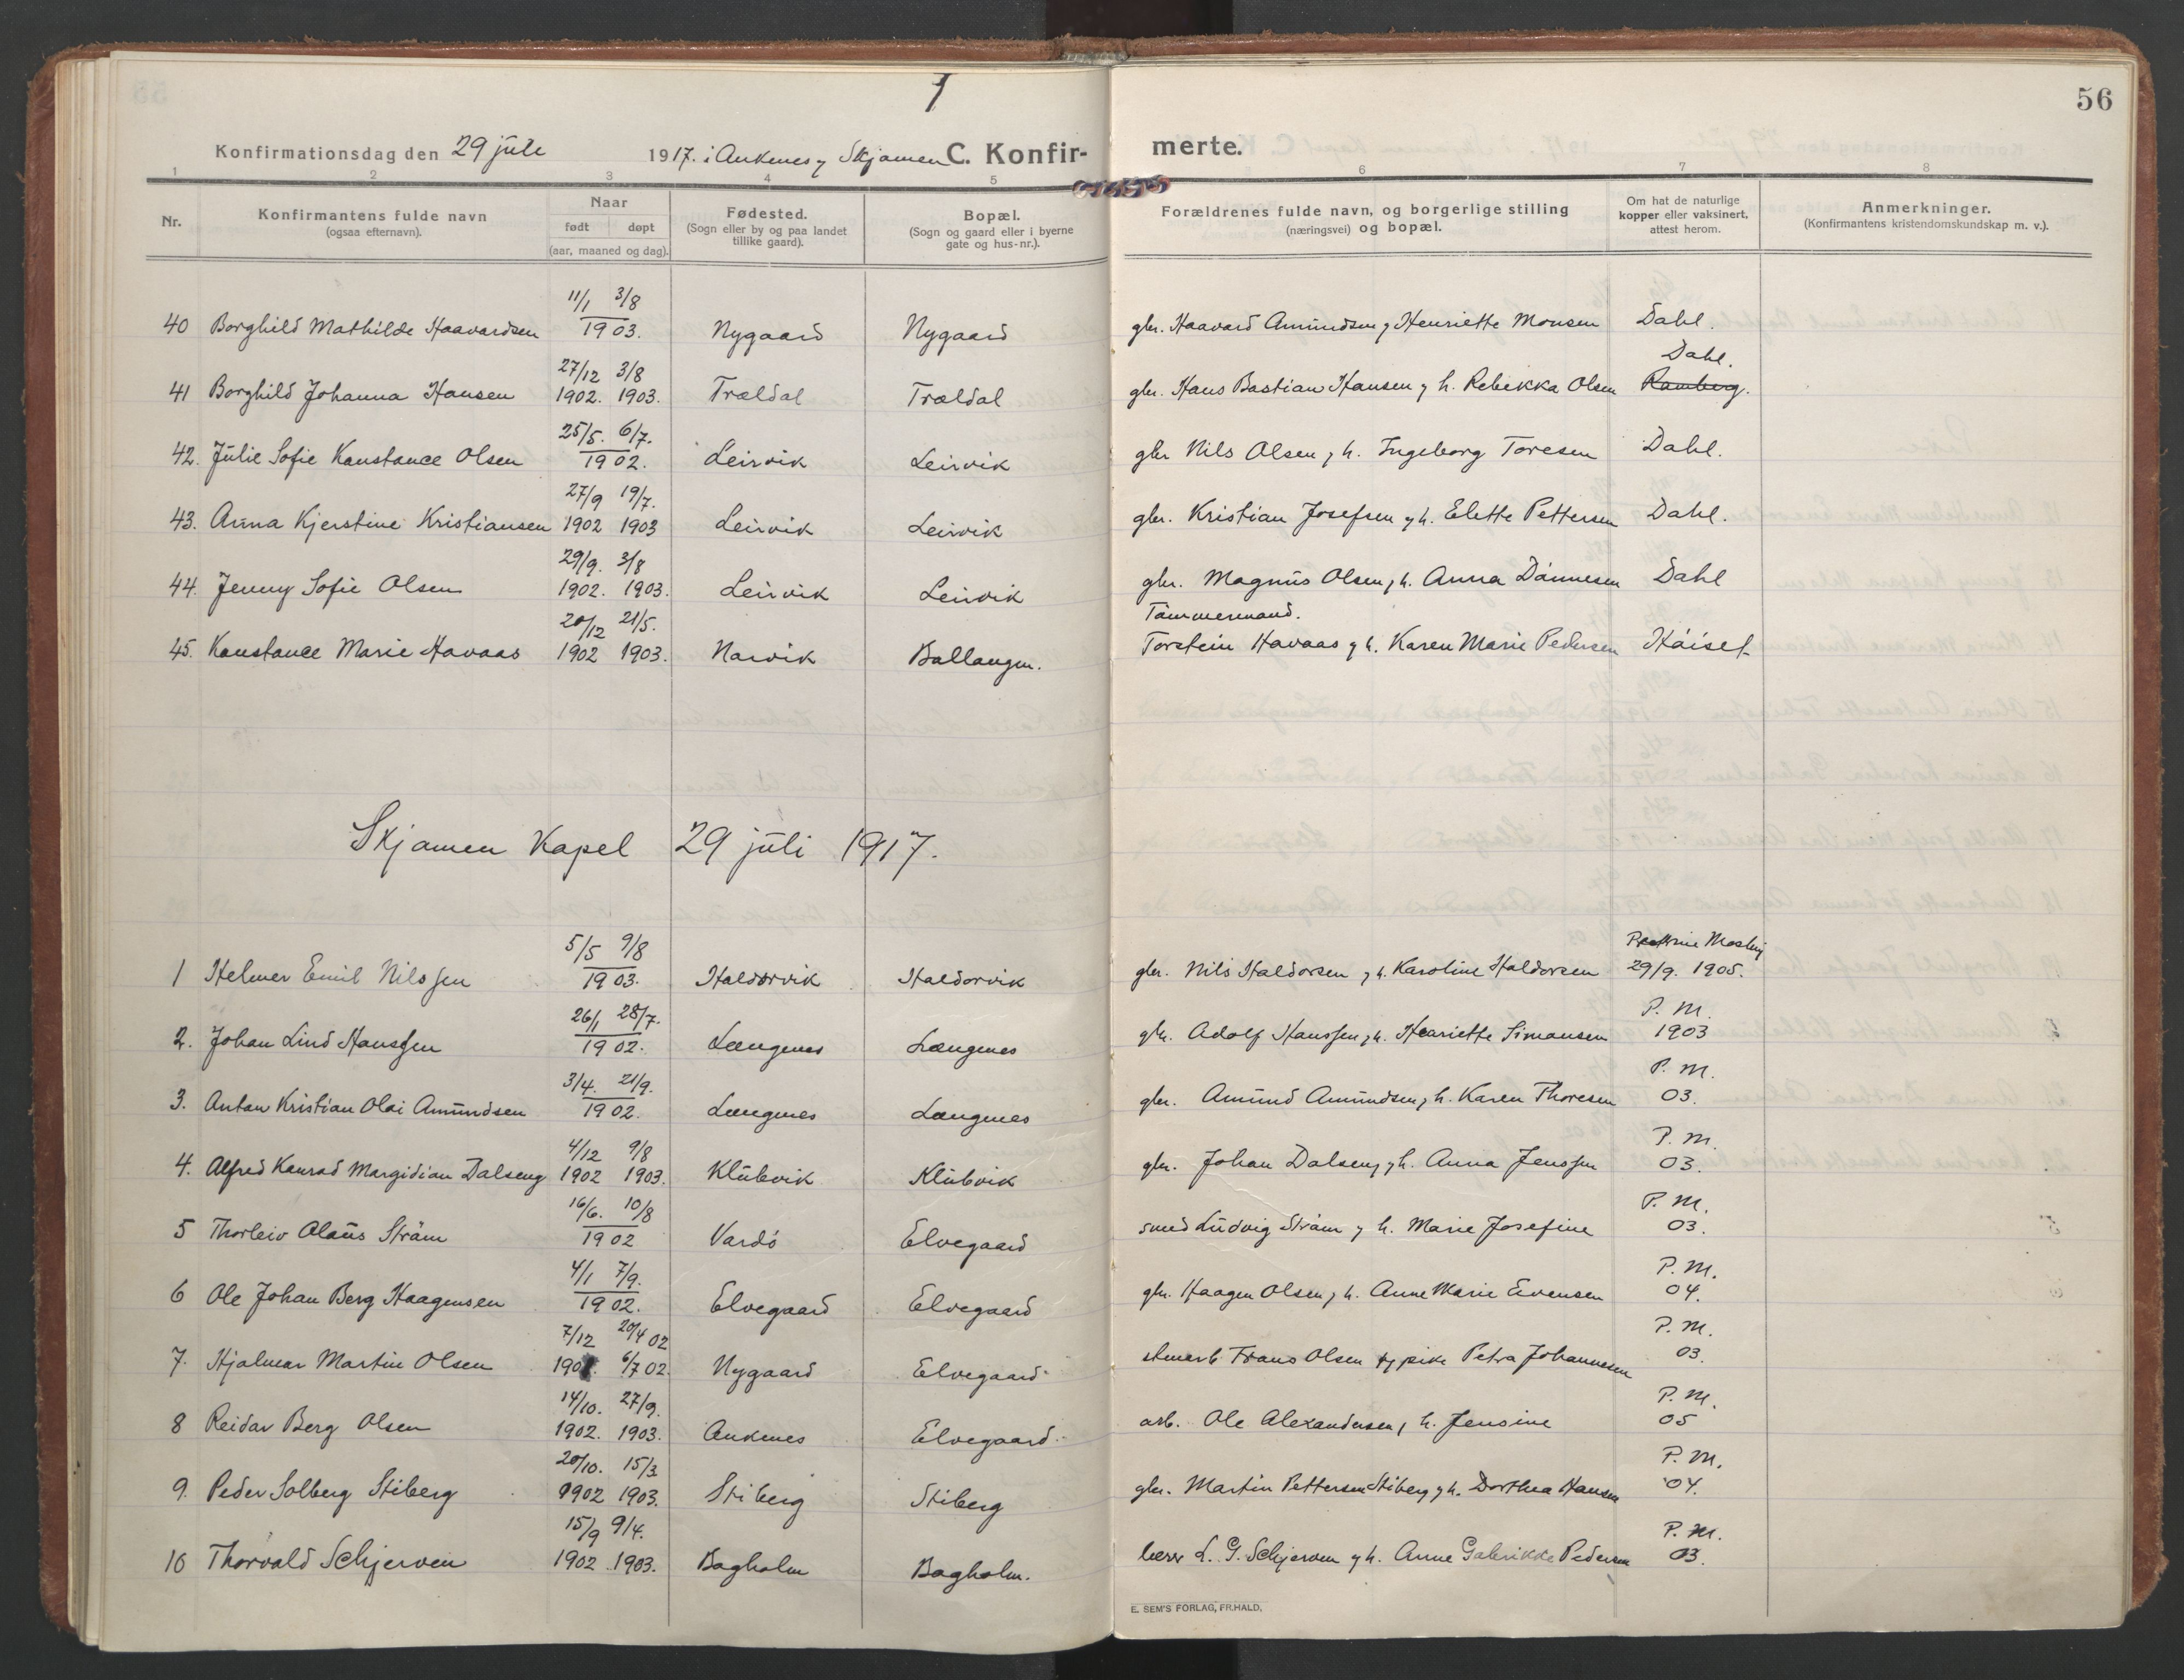 56
Konfirmationsdag den 29 juli 1917. i Ankenes y Skjomen C. Konfir-merte.
1 2 3 4 5 6 7 8
Nr. Konfirmantens fulde navn (ogsaa efternavn). Naar født døpt (aar, maaned og dag). Fødested. (Sogn eller by og paa landet tillike gaard). Bopæl. (Sogn og gaard eller i byerne gate og hus-nr.). Forældrenes fulde navn, og borgerlige stilling (næringsvei) og bopæl. Om hat de naturlige kopper eller vaksinert, attest herom. Anmerkninger. (Konfirmantens kristendomskundskap m. v.).
11/1 3/8
40 Borghild Mathilde Haavardsen 1903. Nygaard Nygaard gbr. Haavard Amundsen y Henriette Monsen Dahl.
27/12 3/8 Dahl.
41 Borghild Johanna Hansen 1902. 1903. Trældal Trældal gbr. Hans Bastian Hansen y h. Rebekka Olsen Ramberg.
25/5. 6/7.
42. Julie Sofie Konstance Olsen 1902. Leirvik Leirvik gbr Nils Olsen y h. Ingeborg Toresen Dahl.
27/9 19/7.
43. Anna Kjerstine Kristiansen 1902 1903 Leirvik Leirvik gbr. Kristian Josefsen y h. Elette Pettersen Dahl.
29/9. 3/8
44. Jenny Sofie Olsen 1902. 1903. Leirvik Leirvik gbr. Magnus Olsen y h. Anna Dønnesen Dahl
20/12 21/5. Tømmermand.
45. Konstance Marie Havaas 1902 1903. Narvik Ballangen. Torstein Havaas y h. Karen Marie Pedersen Høiset
Skjomen Kapel 29 juli 1917.
5/5 9/8 Mosling
1 Helmer Emil Nilssen 1903. Haldorvik Haldorvik gbr. Nils Haldorsen y h. Karoline Haldorsen 29/9. 1905.
26/1 28/7. P. M.
2. Johan Lind Hanssen 1902. Længenes Længenes gbr. Adolf Hanssen y h. Henriette Simonsen 1903
3/4. 21/9. P. M.
3. Anton Kristian Olai Amundsen 1902. Længenes Længenes gbr. Amund Amundsen y h. Karen Thoresen 03.
4/12 9/8 P. M.
4. Alfred Konrad Margidian Dalseng 1902 1903. Klubvik Klubvik gbr. Johan Dalseng y h. Anna Jenssen 03.
16/6. 10/8 P. M.
5 Thorleiv Olaus Strøm 1902 Vardø Elvegaard smed Ludvig Strøm y h. Marie Josefine 03.
4/1 7/9. P. M.
6 Ole Johan Berg Haagensen 1902. Elvegaard Elvegaard gbr. Haagen Olsen y h. Anne Marie Evensen 04.
7/12 20/4 02 P. M.
7. Hjalmar Martin Olsen 1901. 6/7 02. Nygaard Elvegaard Frans Olsen y pike Petra Johannesen 03.
14/10. 27/9. P. M.
8 Reidar Berg Olsen 1902. 1903. Ankenes Elvegaard arb. Ole Alexandersen y h. Jensine 05
20/10. 15/3 P. M.
9. Peder Solberg Stiberg 1902 1903. Stiberg Stiberg gbr. Martin Pettersen Stiberg y h. Dorthea Hansen 04.
15/9 9/4. P. M.
10 Thorvald Schjerven 1902 1903. Bagholm Bagholm. lærer L. G. Schjerven y h. Anne Gabrikke Pedersen 03.
E. SEM'S FORLAG, FR.HALD.